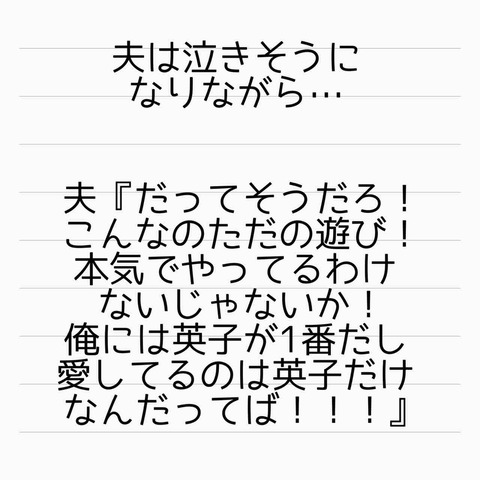 夫は泣きそうに
なりながら…
夫『だってそうだろ！
こんなのただの遊び！
本気でやってるわけ
ないじゃないか！
俺には英子が1番だし
愛してるのは英子だけ
なんだってば！！！』